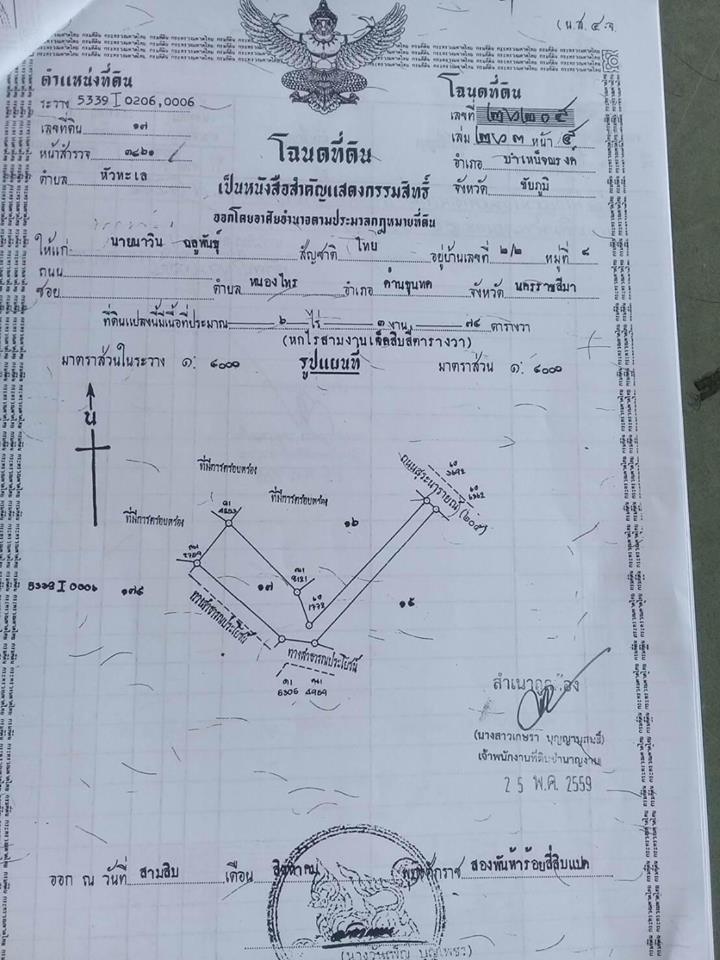 (น.ส.๔ จ.
ตำแหน่งที่ดิน
ระวาง 5339 I 0206,0006
เลขที่ดิน ๑๗
หน้าสำรวจ ๓๔๖๑
ตำบล หัวทะเล
โฉนดที่ดิน
เลขที่ ๒๖๒๐๕
เล่ม ๒๖๓ หน้า ๕
อำเภอ บำเหน็จณรงค์
จังหวัด ชัยภูมิ
โฉนดที่ดิน
เป็นหนังสือสำคัญแสดงกรรมสิทธิ์
ออกโดยอาศัยอำนาจตามประมวลกฎหมายที่ดิน
ให้แก่ นายนาวิน ฉลูพันธุ์ สัญชาติ ไทย อยู่บ้านเลขที่ ๒/๒ หมู่ที่ ๘
ถนน
ซอย ตำบล หนองไทร อำเภอ ด่านขุนทด จังหวัด นครราชสีมา
ที่ดินแปลงนี้มีเนื้อที่ประมาณ ๖ ไร่ ๓ งาน ๗๔ ตารางวา
(หกไร่สามงานเจ็ดสิบสี่ตารางวา)
มาตราส่วนในระวาง ๑: ๔๐๐๐ รูปแผนที่ มาตราส่วน ๑: ๔๐๐๐
น
ที่มีการครอบครอง
ที่มีการครอบครอง
ที่มีการครอบครอง
ถนนสุระนารายณ์(๒๐๕)
๑๖
5339 I 0006 ๑๗๕
๑๗
๑๕
ทางสาธารณประโยชน์
ทางสาธารณประโยชน์
6306 4969
สำเนาถูกต้อง
(นางสาวเกษรา บุญญานุสนธิ์)
เจ้าพนักงานที่ดินชำนาญงาน
2 5 พ.ค. 2559
ออก ณ วันที่ สามสิบ เดือน สิงหาคม พุทธศักราช สองพันห้าร้อยสี่สิบแปด
(นางวันเพ็ญ บุญเพชร)